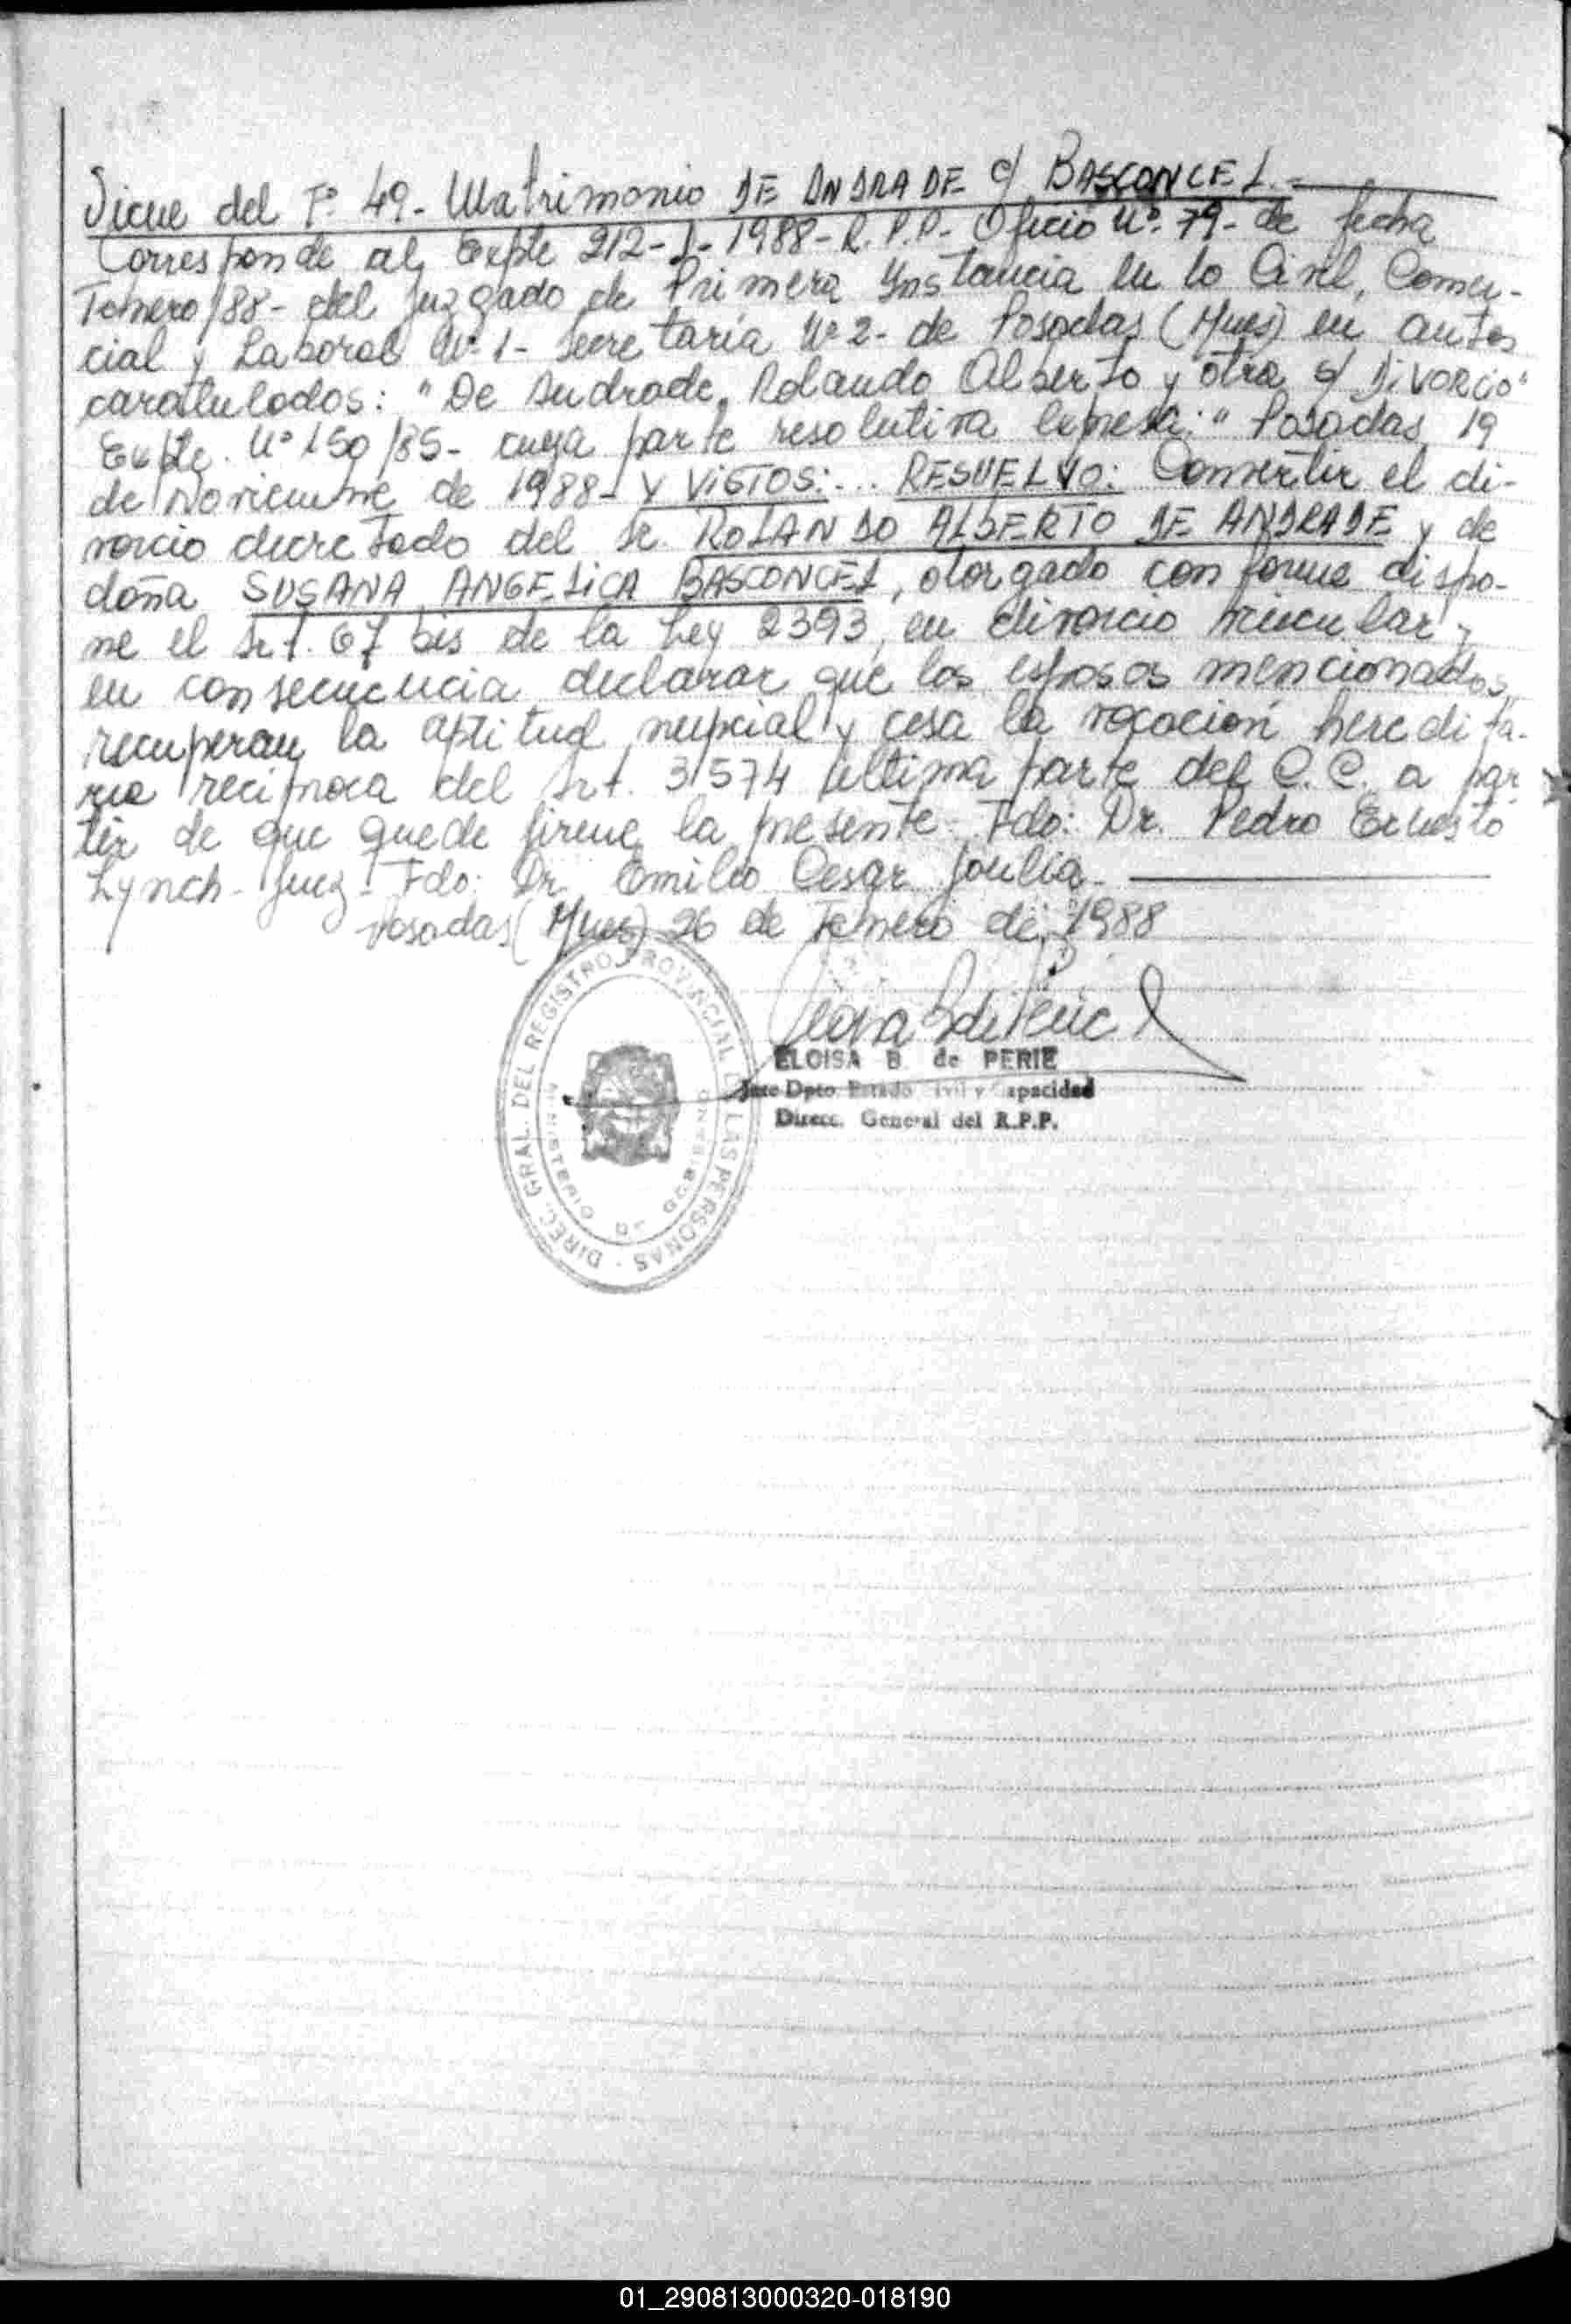 Viene del Fº 49- Matrimonio DE ANDRADE c/ BASCONCEL.-
Corresponde al Expte 212-J-1988-R.P.P- Oficio Nº 79- de fecha
Febrero/88- del Juzgado de Primera Instancia en lo Civil, Comer-
cial y Laboral Nº 1- Secretaría Nº 2- de Posadas (Mnes) en autos
caratulados: "De Andrade, Rolando Alberto y otra s/ DIVORCIO"
Expte. Nº 150/85- cuya parte resolutiva expresa: "Posadas, 19
de Noviembre de 1988- Y VISTOS:... RESUELVO: Convertir el di-
vorcio decretado del Sr. ROLANDO ALBERTO DE ANDRADE y de
doña SUSANA ANGELICA BASCONCEL, otorgado conforme dispo-
ne el Art. 67 bis de la Ley 2393, en divorcio vincular y
en consecuencia declarar que los esposos mencionados,
recuperan la aptitud nupcial y cesa la vocación heredita-
ria recíproca del Art. 3574 última parte del C.C. a par
tir de que quede firme la presente. Fdo: Dr. Pedro Ernesto
Lynch- Juez- Fdo: Dr. Emilio Cesar Joulia-
Posadas (Mnes) 26 de Febrero de 1988
ELOISA B. de PERIE
Jefe Dpto. Estado Civil y Capacidad
Direcc. General del R.P.P.
DIREC. GRAL. DEL REGISTRO PROVINCIAL DE LAS PERSONAS
MINISTERIO DE GOBIERNO
01_290813000320-018190